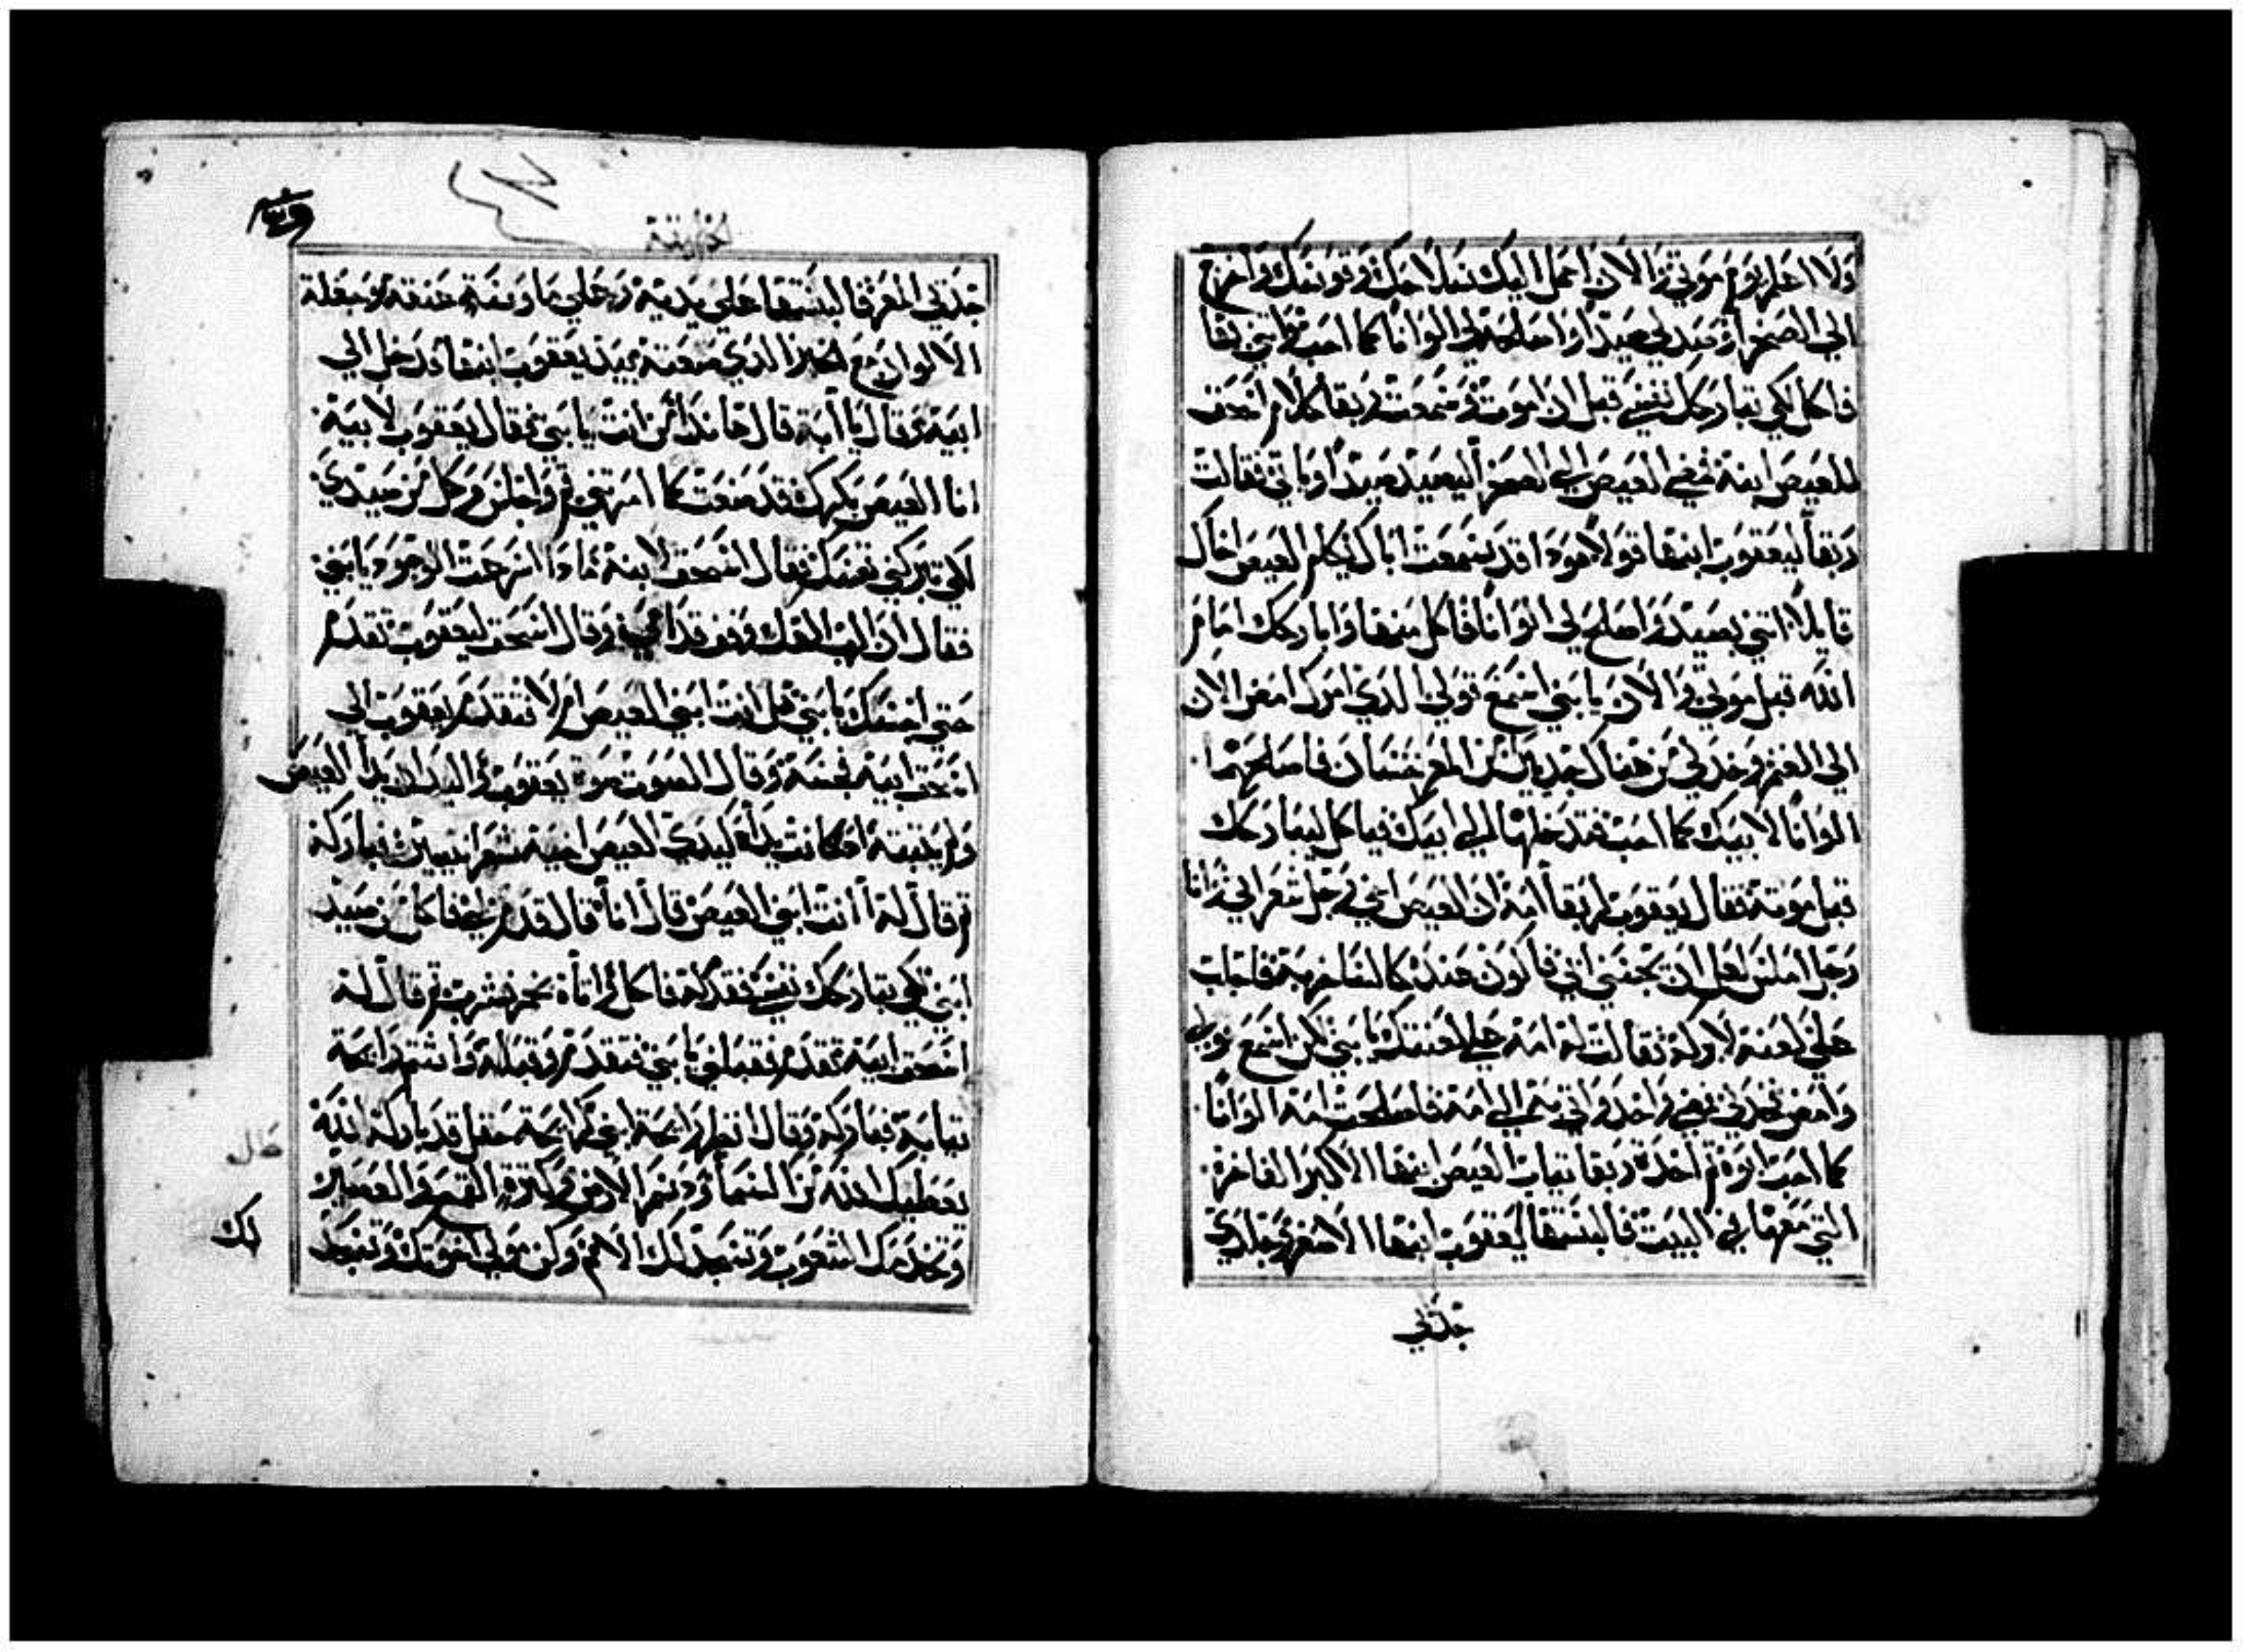 ولا اعلم يوم موتي والان احمل اليك نبلا حك وقوسك واخرج
الي الصحرا وصيد لي صيدًا واصلحه لي الوانًا كما احب واتني بها
فاكل لكي تباركك نفسي قبل ان اموت وسمعت ربقا كلام اسحق
للعيص ابنه فمضي العيص الي الصحرا ليصيد صيدًا وياتي فقالت
ربقا ليعقوب ابنها قولا هوذا قد سمعت اباك يكلم العيص اخاك
قايلًا اتني بصيد واصلح لي الوانًا فاكل منها واباركك امام
الله قبل موتي والان يا بني اسمع قولي الذي امرك امض الان
الي الغنم وخد لي من هناك جديين من المعز حسان فاصلحهما
الوانًا لابيك كما احب فتدخلها الي ابيك فياكل ليباركك
قبل موته فقال يعقوب لربقا امه ان العيص اخي رجل شعراني وانا
رجل املس لعل ان يجسني ابي فاكون عنده كالساخر به فاجلب
علي لعنه لا بركه فقالت له امه علي لعنتك يا بني لكن اسمع قولي
وامض فخد لي فمضي واخد واتي بهم الي امه فاصلحت امه الوانًا
كما احب ابوه ثم اخدت ربقا تياب العيص ابنها الاكبر الفاخره
التي معها في البيت فالبستها ليعقوب ابنها الاصغر وجلدي
جلدي
جلدي المعز فالبستها علي يديه وعلي ما دينة عنقه وجعلت
الالوان مع الخبز الدي صنعته بيد يعقوب ابنها ودخل الي
ابيه وقال يا ابه قال هاندا من انت يا بني فقال يعقوب لابيه
انا العيص بكرك قد صنعت كما امرتني قم واجلس وكل من صيدي
لكي تبركني نفسك فقال اسحق لابنه مادا اسرعت الوجود يا بني
فقال ان الرب الهك وفق قدامي وقال اسحق ليعقوب تقدم
حتي اجسك يا بني هل انت ابني العيص ام لا فتقدم يعقوب الي
اسحق ابيه فجسه وقال الصوت صوت يعقوب واليدان يدا العيص
ولم يتبته اد كانت يداه كيدي العيص اخيه شعرانيتين فباركه
ثم قال له انت ابني العيص قال انا قال قدم لي فاكل من صيد
ابني لكي تباركك نفسي فقدم له فاكل واتاه بخمر فشرب ثم قال له
اسحق ابيه تقدم فقبلني يا بني فتقدم وقبله واشتم رايحة
تيابه فباركه وقال انظر رايحة ابني كرايحة حقل قد باركه الله
يعطيك الله من السما ودسم الارض وكترة القمح والعصير
وتخدمك الشعوب وتسجد لك الامم وكن مولي اخوتك وتسجد
لك